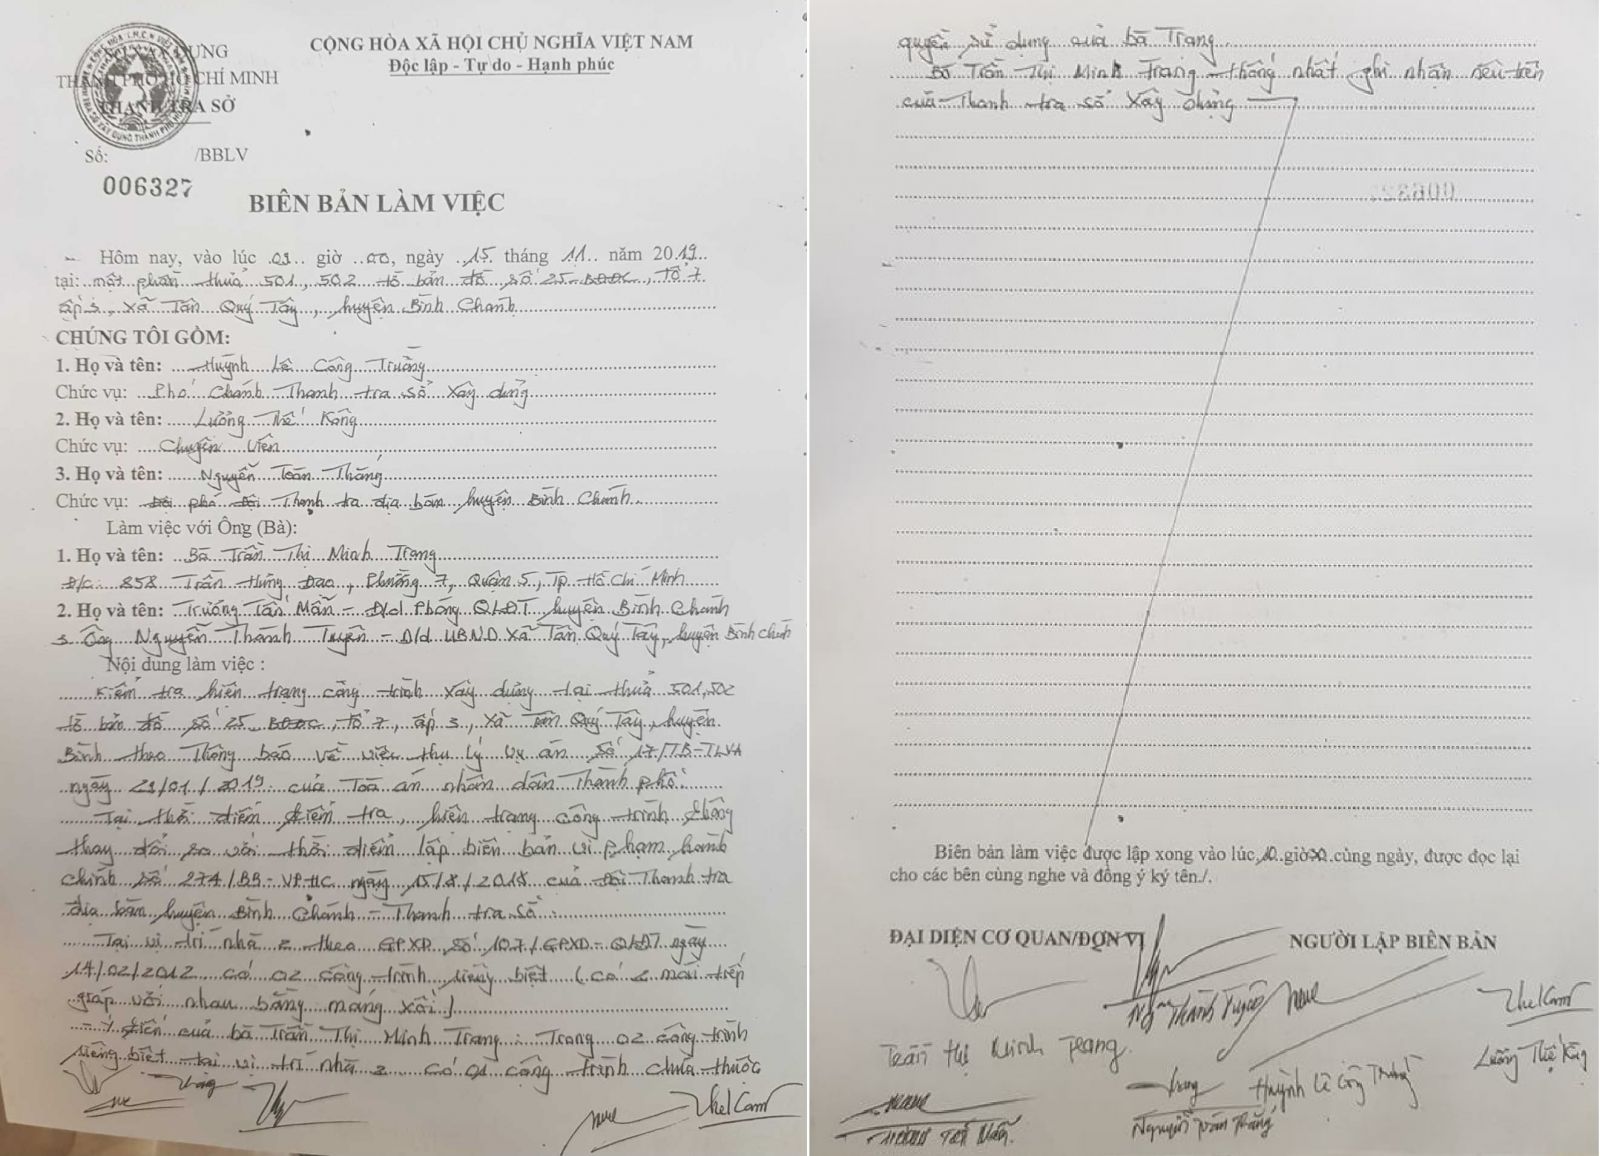 CỘNG HÒA XÃ HỘI CHỦ NGHĨA VIỆT NAM
Độc lập - Tự do - Hạnh phúc
THÀNH PHỐ HỒ CHÍ MINH
THANH TRA SỞ
Số: /BBLV
006327
BIÊN BẢN LÀM VIỆC
Hôm nay, vào lúc 09 giờ 00, ngày 15 tháng 11 năm 2019
tại: một phần thửa 501, 502 tờ bản đồ số 25, Tổ 7
ấp 3, xã Tân Quý Tây, huyện Bình Chánh
CHÚNG TÔI GỒM:
1. Họ và tên: Huỳnh Lê Công Trường
Chức vụ: Phó Chánh Thanh tra sở Xây dựng
2. Họ và tên: Lường Thế Kông
Chức vụ: Chuyên viên
3. Họ và tên: Nguyễn Toàn Thắng
Chức vụ: phó Đội Thanh tra địa bàn huyện Bình Chánh
Làm việc với Ông (Bà):
1. Họ và tên: Bà Trần Thị Minh Trang
Đ/c: 858 Trần Hưng Đạo, Phường 7, Quận 5, TP. Hồ Chí Minh
2. Họ và tên: Trương Tấn Mẫn - Đ/d Phòng QLĐT huyện Bình Chánh
3. Ông Nguyễn Thành Tuyên - Đ/d UBND xã Tân Quý Tây, huyện Bình Chánh
Nội dung làm việc :
Kiểm tra hiện trạng công trình xây dựng tại thửa 501, 502
tờ bản đồ số 25, tổ 7, ấp 3, xã Tân Quý Tây, huyện
Bình theo Thông báo về việc thụ lý vụ án số 17/TB-TLVA
ngày 29/01/2019 của Toà án nhân dân Thành phố.
Tại thời điểm kiểm tra, hiện trạng công trình không
thay đổi so với thời điểm lập biên bản vi phạm hành
chính số 274/BB-VPHC ngày 15/8/2018 của Đội Thanh tra
địa bàn huyện Bình Chánh - Thanh tra sở.
Tại vị trí nhà 2 theo GPXD số 107/GPXD-QLĐT ngày
14/02/2012 có 02 công trình riêng biệt (có 2 mái tiếp
giáp với nhau bằng máng xối)
- Ý kiến của bà Trần Thị Minh Trang: Trong 02 công trình
riêng biệt tại vị trí nhà 2 có 01 công trình chưa thuộc
quyền sử dụng của bà Trang.
Bà Trần Thị Minh Trang thống nhất ghi nhận nêu trên
của Thanh tra sở Xây dựng
Biên bản làm việc được lập xong vào lúc 10 giờ cùng ngày, được đọc lại
cho các bên cùng nghe và đồng ý ký tên./.
ĐẠI DIỆN CƠ QUAN/ĐƠN VỊ
NGƯỜI LẬP BIÊN BẢN
Trần Thị Minh Trang
Ng Thành Tuyên
Huỳnh Lê Công Trường
Lường Thế Kông
Trương Tấn Mẫn
Nguyễn Toàn Thắng